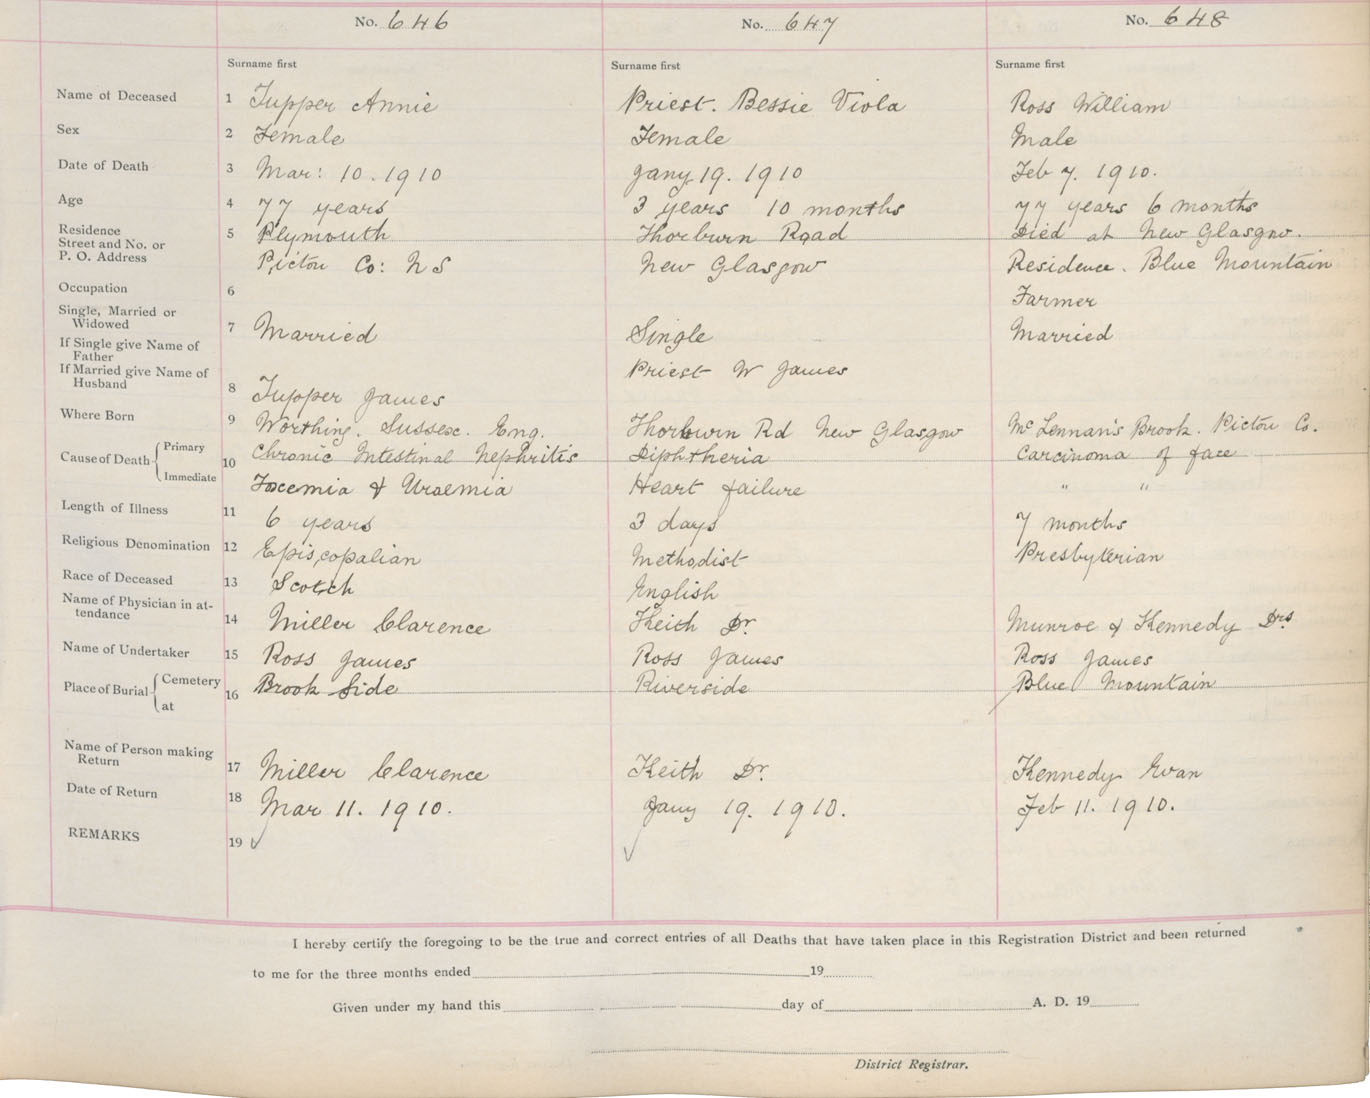 No. 646 No. 647 No. 648
Surname first Surname first Surname first
Name of Deceased 1 Tupper Annie Priest. Bessie Viola Ross William
Sex 2 Female Female Male
Date of Death 3 Mar: 10. 1910 Jany 19. 1910 Feb 7. 1910.
Age 4 77 years 3 years 10 months 77 years 6 months
Residence
Street and No. or 5 Plymouth Thorburn Road Died at New Glasgow.
P. O. Address Pictou Co: N S New Glasgow Residence. Blue Mountain
Occupation 6 Farmer
Single, Married or
Widowed 7 Married Single Married
If Single give Name of
Father Priest W James
If Married give Name of
Husband 8 Tupper James
Where Born 9 Worthing. Sussex. Eng. Thorburn Rd New Glasgow McLennan's Brook. Pictou Co.
Cause of Death Primary 10 Chronic Intestinal Nephritis Diphtheria Carcinoma of face
Immediate Toxemia & Uraemia Heart failure " "
Length of Illness 11 6 years 3 days 7 months
Religious Denomination 12 Episcopalian Methodist Presbyterian
Race of Deceased 13 Scotch English
Name of Physician in at-
tendance 14 Miller Clarence Keith Dr. Munroe & Kennedy Drs
Name of Undertaker 15 Ross James Ross James Ross James
Place of Burial Cemetery 16 Brook Side Riverside Blue Mountain
at
Name of Person making
Return 17 Miller Clarence Keith Dr. Kennedy Evan
Date of Return 18 Mar 11. 1910. Jany 19. 1910. Feb 11. 1910.
REMARKS 19
I hereby certify the foregoing to be the true and correct entries of all Deaths that have taken place in this Registration District and been returned
to me for the three months ended 19
Given under my hand this day of A. D. 19
District Registrar.